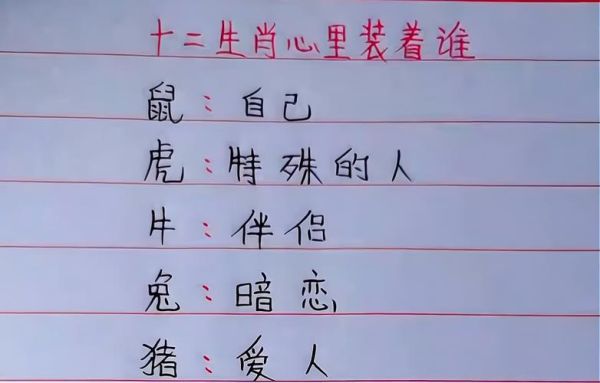 十二生肖心里装着谁
鼠：自己
虎：特殊的人
牛：伴侣
兔：暗恋
猪：爱人